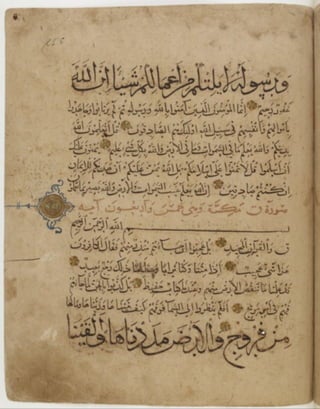 ورسوله لا يلتكم من أعمالكم شيئا إن الله
غفور رحيم إنما المؤمنون الذين آمنوا بالله ورسوله ثم لم يرتابوا وجاهدوا
بأموالهم وأنفسهم في سبيل الله أولئك هم الصادقون قل أتعلمون الله
بدينكم والله يعلم ما في السموات وما في الأرض والله بكل شيء عليم يمنون عليك
أن أسلموا قل لا تمنوا علي إسلامكم بل الله يمن عليكم أن هداكم للإيمان
إن كنتم صادقين إن الله يعلم غيب السموات والأرض والله بصير بما تعملون
سورة ق مكية وهي خمس وأربعون آية
بسم الله الرحمن الرحيم
ق والقرآن المجيد بل عجبوا أن جاءهم منذر منهم فقال الكافرون
هذا شيء عجيب أئذا متنا وكنا ترابا ذلك رجع بعيد
قد علمنا ما تنقص الأرض منهم وعندنا كتاب حفيظ بل كذبوا بالحق لما جاءهم
فهم في أمر مريج أفلم ينظروا إلى السماء فوقهم كيف بنيناها وزيناها وما لها
من فروج والأرض مددناها وألقينا